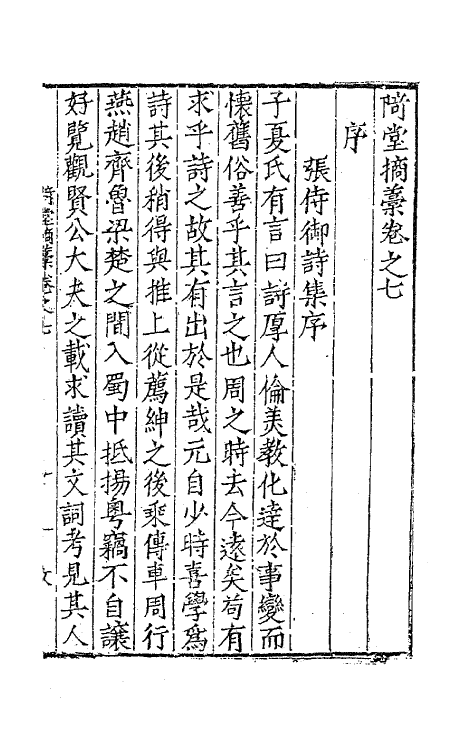 陭堂摘藁卷之七
序
張侍御詩集序
子夏氏有言曰詩厚人倫美教化達於事變而
懷舊俗善乎其言之也周之時去今遠矣苟有
求乎詩之故其有出於是哉元自少時喜學爲
詩其後稍得與推上從薦紳之後乘傳車周行
燕趙齊魯梁楚之間入蜀中抵揚粵竊不自讓
好覽觀賢公大夫之載求讀其文詞考見其人
陭堂摘藁卷之七
一